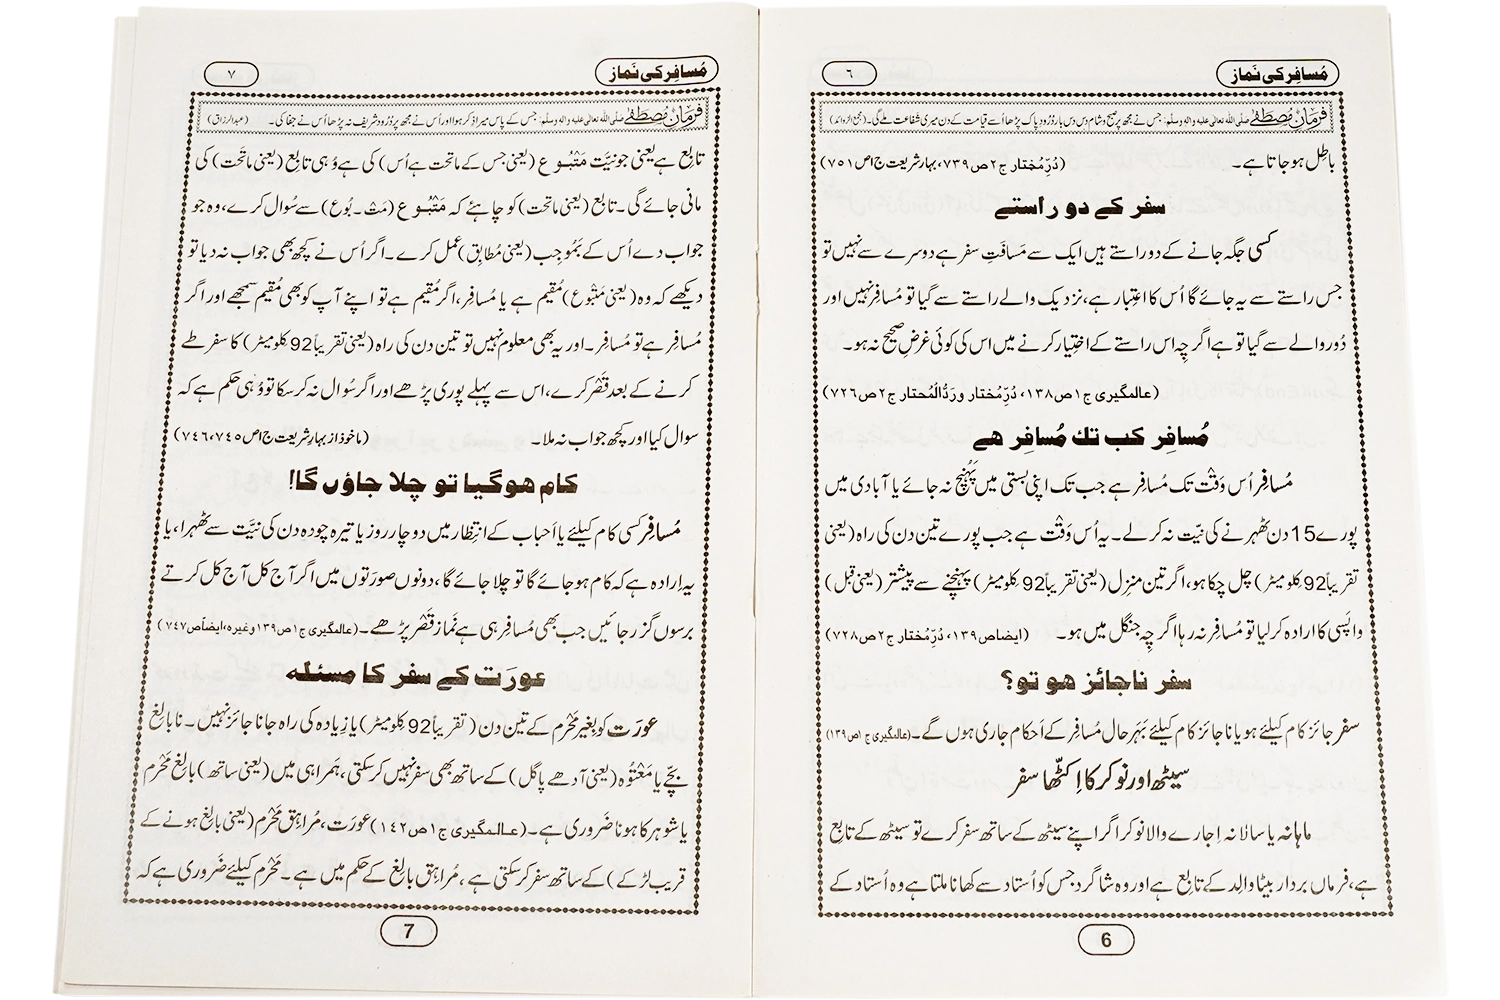 مُسافِر کی نَماز
٦
فرمانِ مُصطَفٰے صلی اللہ تعالیٰ علیہ والہ وسلم: جس نے مجھ پر صبح و شام دس دس بار دُرُود پاک پڑھا اُسے قیامت کے دن میری شفاعت ملے گی۔ (مجمع الزوائد)
باطِل ہو جاتا ہے۔ (دُرِّمُختار ج۲ص۷۳۹، بہار شریعت ج۱ص۷۵۱)
سفر کے دو راستے
کسی جگہ جانے کے دو راستے ہیں ایک سے مَسافَتِ سفر ہے دوسرے سے نہیں تو
جس راستے سے یہ جائے گا اُس کا اعتِبار ہے، نزدیک والے راستے سے گیا تو مُسافِر نہیں اور
دُور والے سے گیا تو ہے اگرچِہ اس راستے کے اختِیار کرنے میں اس کی کوئی غرضِ صحیح نہ ہو۔
(عالمگیری ج۱ص۱۳۸، دُرِّمُختار وردُّالمُحتار ج۲ص۷۲۶)
مُسافِر کب تک مُسافِر ھے
مُسافِر اُس وَقْت تک مُسافِر ہے جب تک اپنی بستی میں پَہُنچ نہ جائے یا آبادی میں
پورے 15 دن ٹھہرنے کی نیّت نہ کر لے۔ یہ اُس وَقت ہے جب پورے تین دن کی راہ (یعنی
تقریباً 92 کِلومیٹر) چل چکا ہو، اگر تین منزِل (یعنی تقریباً 92 کِلومیٹر) پہنچنے سے پیشتر (یعنی قبل)
واپَسی کا ارادہ کر لیا تو مُسافِر نہ رہا اگرچِہ جنگل میں ہو۔ (ایضاص۱۳۹، دُرِّمُختار ج۲ص۷۲۸)
سفر ناجائز ھو تو؟
سفر جائز کام کیلئے ہو یا ناجائز کام کیلئے بَہَرحال مُسافِر کے اَحکام جاری ہوں گے۔ (عالمگیری ج۱ص۱۳۹)
سیٹھ اور نوکر کا اِکٹّھا سفر
ماہانہ یا سالانہ اِجارے والا نوکر اگر اپنے سیٹھ کے ساتھ سفر کرے تو سیٹھ کے تابِع
ہے، فرماں بردار بیٹا والِد کے تابِع ہے اور وہ شاگرد جس کو اُستاد سے کھانا ملتا ہے وہ اُستاد کے
6
مُسافِر کی نَماز
٧
فرمانِ مُصطَفٰے صلی اللہ تعالیٰ علیہ والہ وسلم: جس کے پاس میرا ذکر ہوا اور اُس نے مجھ پر دُرُود شریف نہ پڑھا اُس نے جفا کی۔ (عبدالرزاق)
تابِع ہے یعنی جو نیَّت مَتْبُوع (یعنی جس کے ماتحت ہے اُس) کی ہے وُہی تابِع (یعنی ماتَحْت) کی
مانی جائے گی۔ تابِع (یعنی ماتحت) کو چاہئے کہ مَتْبُوع (مَتْ۔بُوع) سے سُوال کرے، وہ جو
جواب دے اُس کے بَمُوجِب (یعنی مُطابِق) عمل کرے۔ اگر اُس نے کچھ بھی جواب نہ دیا تو
دیکھے کہ وہ (یعنی مَتْبُوع) مُقیم ہے یا مُسافِر، اگر مُقیم ہے تو اپنے آپ کو بھی مُقیم سمجھے اور اگر
مُسافِر ہے تو مُسافِر۔ اور یہ بھی معلوم نہیں تو تین دن کی راہ (یعنی تقریباً 92 کلومیٹر) کا سفر طے
کرنے کے بعد قَصْر کرے، اس سے پہلے پوری پڑھے اور اگر سُوال نہ کرسکا تو وُہی حکم ہے کہ
سوال کیا اور کچھ جواب نہ ملا۔ (ماخوذ از بہارِ شریعت ج۱ص۷۴۵،۷۴۶)
کام ھوگیا تو چلا جاؤں گا!
مُسافِر کسی کام کیلئے یا اَحباب کے انتِظار میں دو چار روز یا تیرہ چودہ دن کی نیَّت سے ٹھہرا، یا
یہ اِرادہ ہے کہ کام ہو جائے گا تو چلا جائے گا، دونوں صورَتوں میں اگر آج کل آج کل کرتے
برسوں گزر جائیں جب بھی مُسافِر ہی ہے نَماز قَصْر پڑھے۔ (عالمگیری ج۱ص۱۳۹ وغیرہ، ایضاًص۷۴۷)
عورَت کے سفر کا مسئلہ
عورَت کو بِغیر مَحْرَم کے تین دن (تقریباً 92 کِلومیٹر) یا زِیادہ کی راہ جانا جائز نہیں۔ نابالِغ
بچّے یا مَعْتُوہ (یعنی آدھے پاگل) کے ساتھ بھی سفر نہیں کرسکتی، ہَمراہی میں (یعنی ساتھ) بالِغ مَحْرَم
یا شوہر کا ہونا ضَروری ہے۔ (عالمگیری ج۱ص۱۴۲) عورَت، مُراہِق مَحْرَم (یعنی بالِغ ہونے کے
قریب لڑکے) کے ساتھ سفر کرسکتی ہے، مُراہِق بالِغ کے حکم میں ہے۔ مَحْرَم کیلئے ضَروری ہے کہ
7